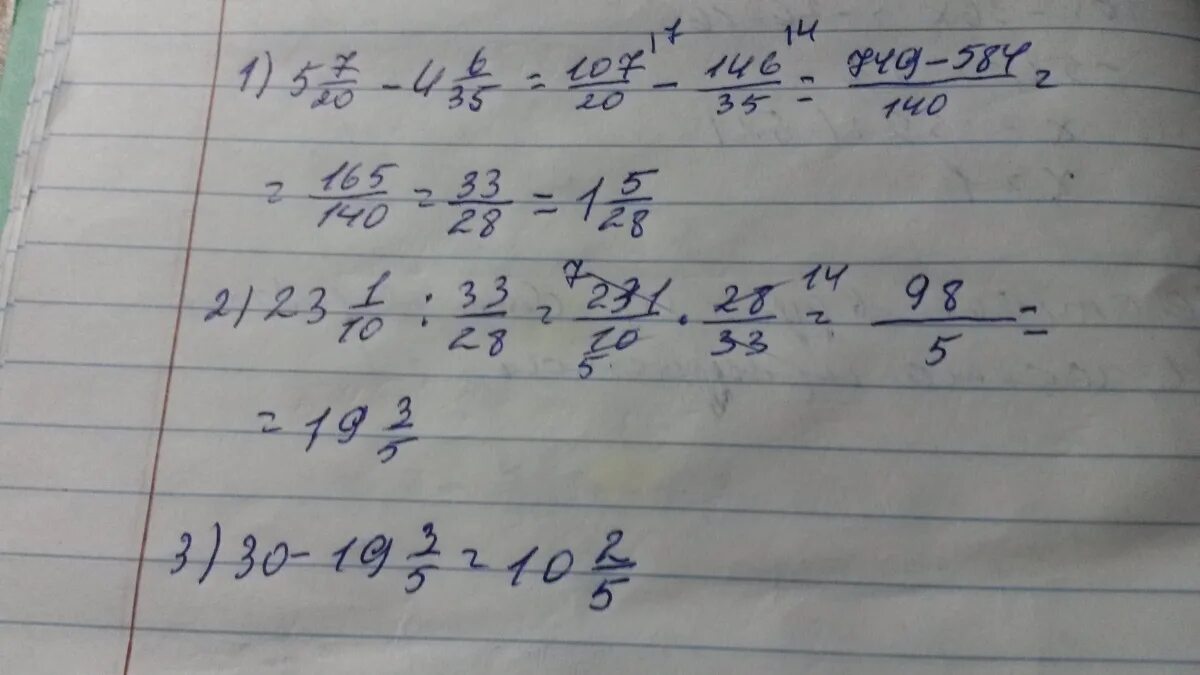 1) 5 7/20 - 4 6/35 = 107/20 |7 - 146/35 |4 = 749-584/140 =
= 165/140 = 33/28 = 1 5/28
2) 23 1/10 : 33/28 = 7 231/10 5 · 28/33 14 = 98/5 =
= 19 3/5
3) 30 - 19 3/5 = 10 2/5